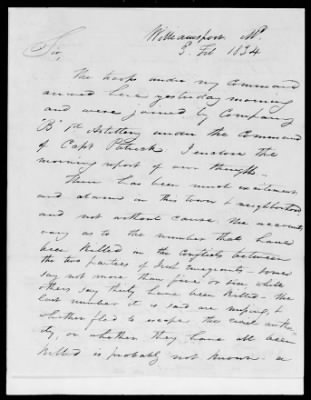 Williamsport Md
3 Feb 1834
Sir,
The troops under my command
arrived here yesterday morning
and were joined by Company
"B" 1st Artillery under the command
of Capt I enclose the
morning report of our strength.
There has been much excitement
and alarm in this town & neighborhood
and not without cause. The accounts
vary as to the number that have
been killed in the conflicts between
the two parties of Irish emigrants - some
say not more than five or six, while
others say thirty have been killed - the
last number it is said are missing, &
whether fled to escape the civil autho-
ity, or whether they have all been
killed is probably not known - a